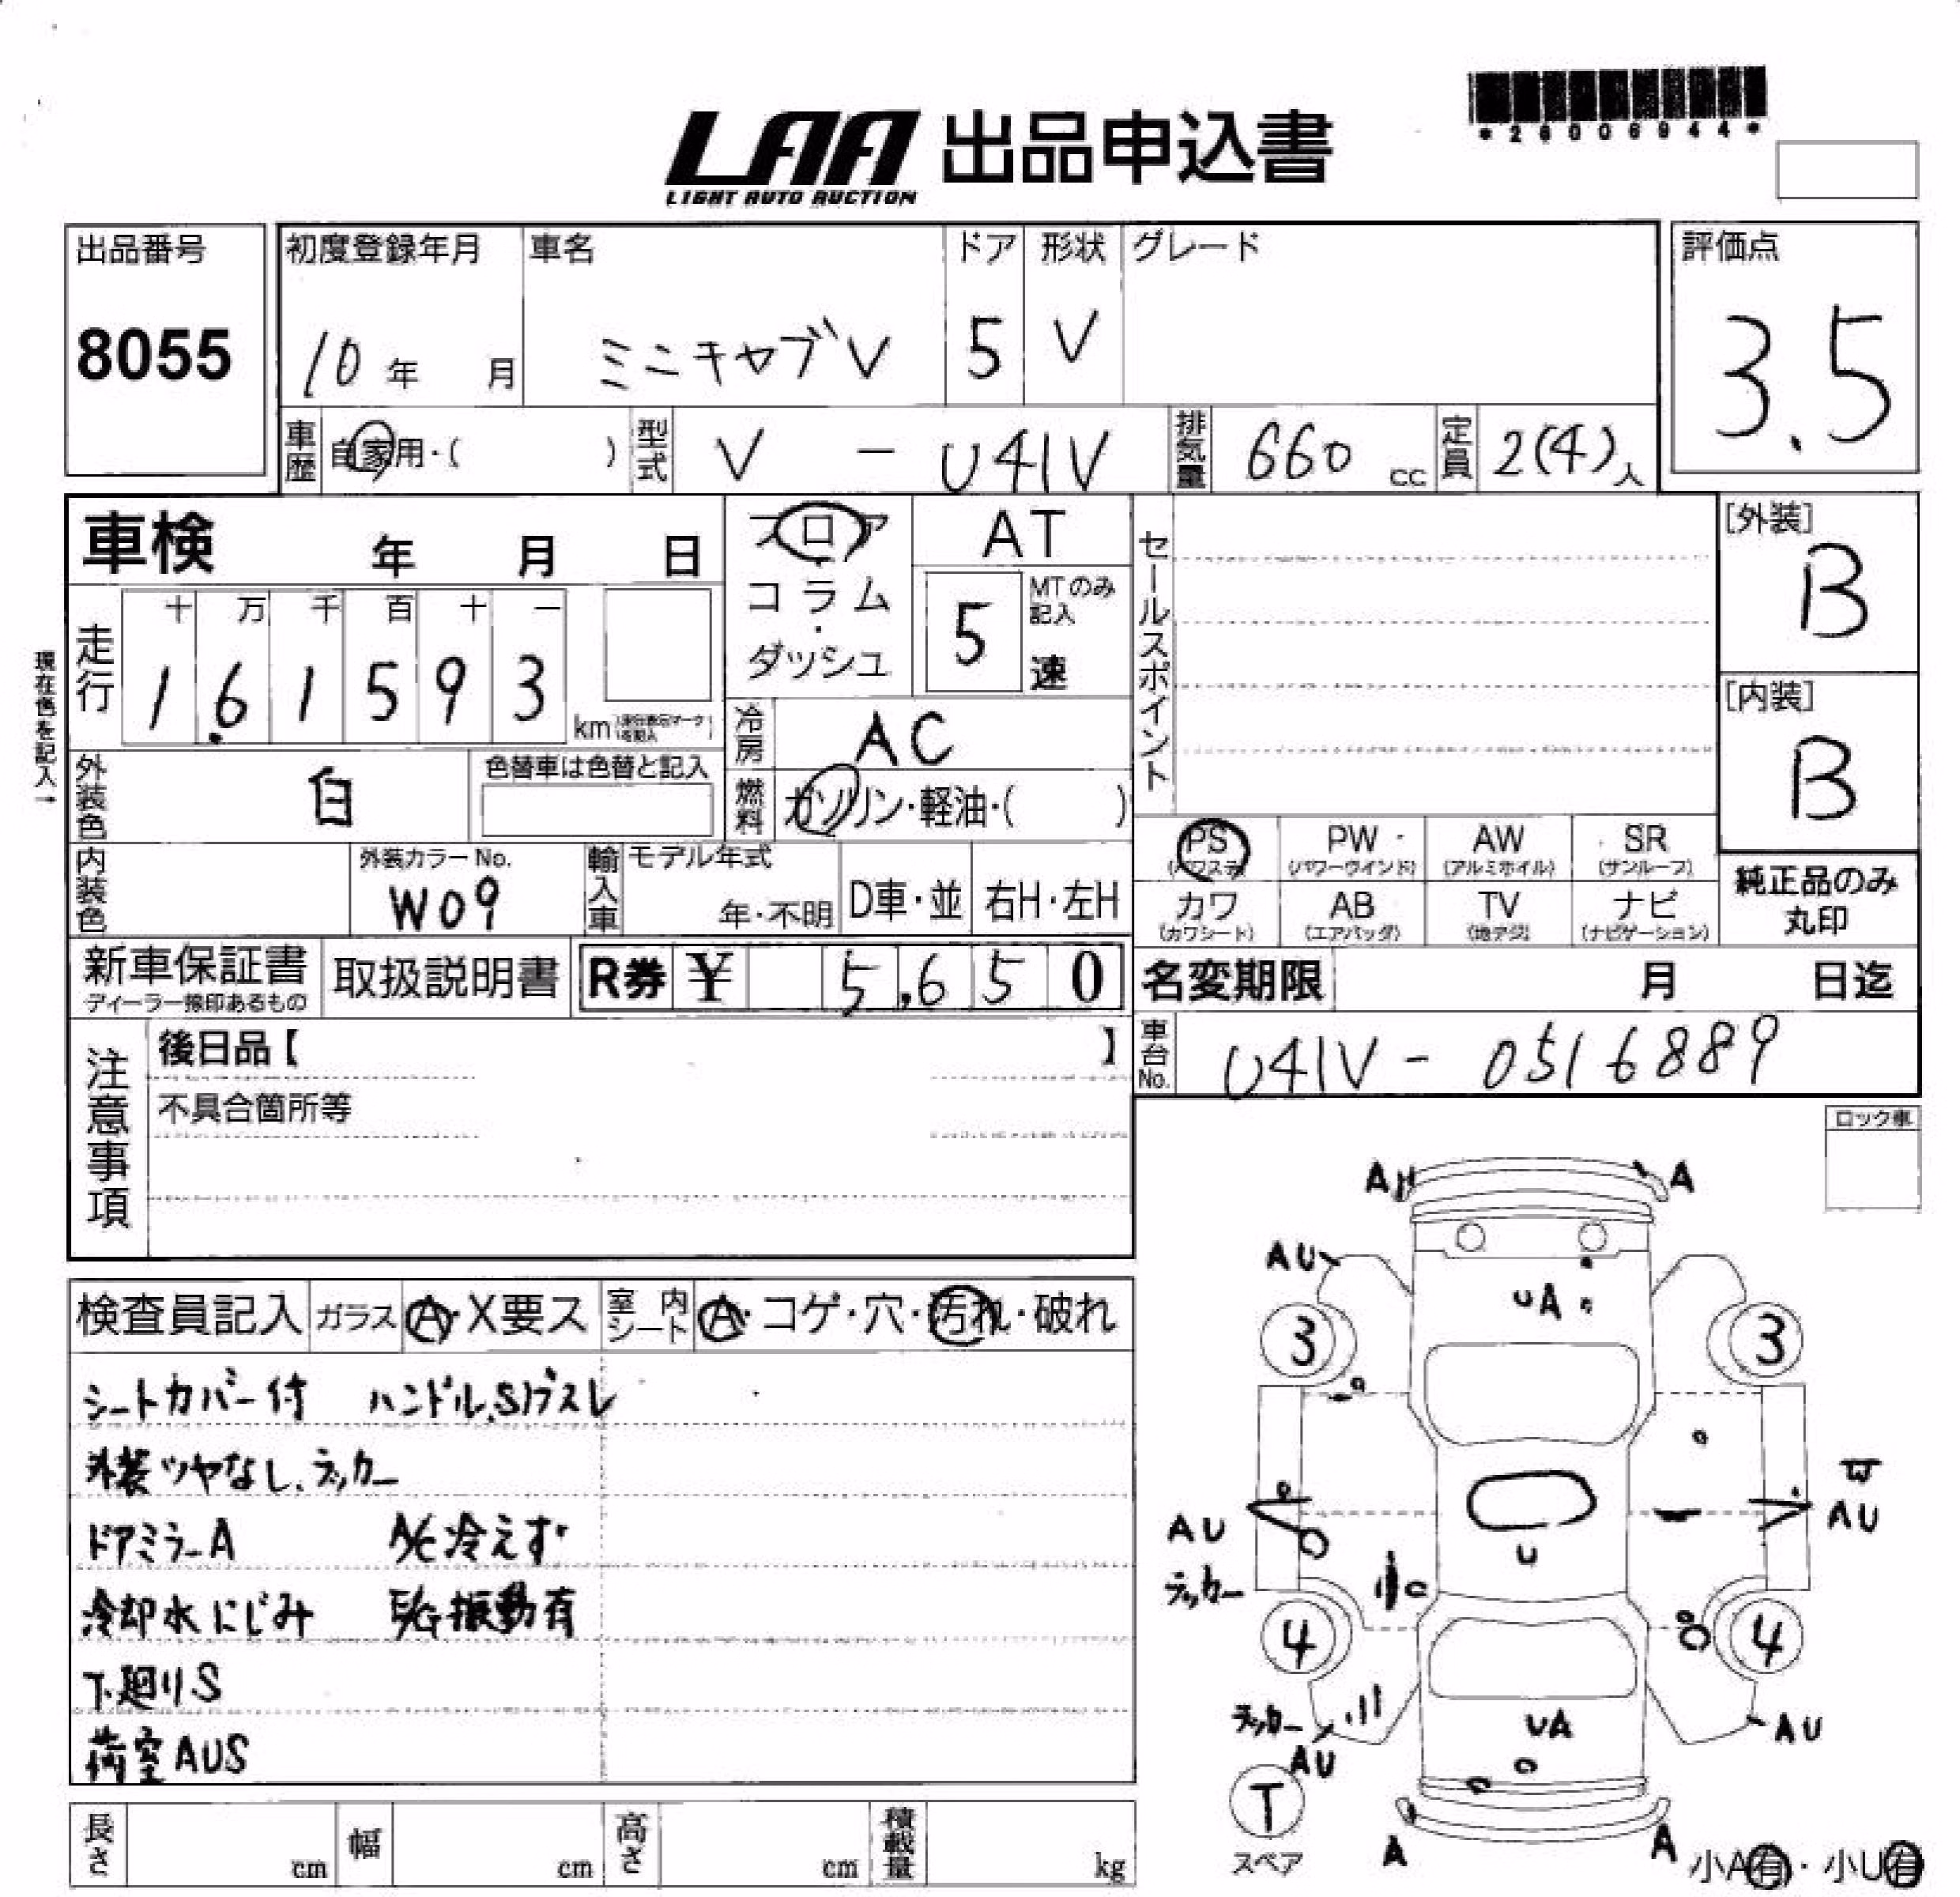 *26006944*
LAA 出品申込書
LIGHT AUTO AUCTION
出品番号 初度登録年月 車名 ドア 形状 グレード 評価点
8055 10年 月 ミニキャブV 5 V 3.5
車歴 自家用・( ) 型式 V - U41V 排気量 660 cc 定員 2(4)人
車検 年 月 日 フロア・コラム・ダッシュ AT セールスポイント [外装]
B
5 MTのみ記入 速
走行 十 万 千 百 十 一
1.61593 km
現在色を記入→
[内装]
B
冷房 AC
外装色 白 色替車は色替と記入
燃料 ガソリン・軽油・( )
PS PW AW SR
(パワステ) (パワーウインド) (アルミホイル) (サンルーフ)
内装色 外装カラーNo. W09 輸入車 モデル年式 年・不明 D車・並 右H・左H
カワ AB TV ナビ
(カワシート) (エアバッグ) (地デジ) (ナビゲーション)
純正品のみ
丸印
新車保証書 取扱説明書 R券 ¥ 5,650 名変期限 月 日迄
ディーラー捺印あるもの
車台No. U41V - 0516889
注意事項 後日品【 】
不具合箇所等
ロック車
検査員記入 ガラス A・X要ス 室内シート A・コゲ・穴・汚れ・破れ
シートカバー付 ハンドル、Sノブスレ
外装ツヤなし、ラッカー
ドアミラーA A/C冷えず
冷却水にじみ E/G振動有
下廻りS
荷室AUS
長さ cm 幅 cm 高さ cm 積載量 kg
A A
AU
UA
3 3
AU U AU
ラッカー
4 4
ラッカー
AU UA AU
T
スペア
A A
小A有・小U有